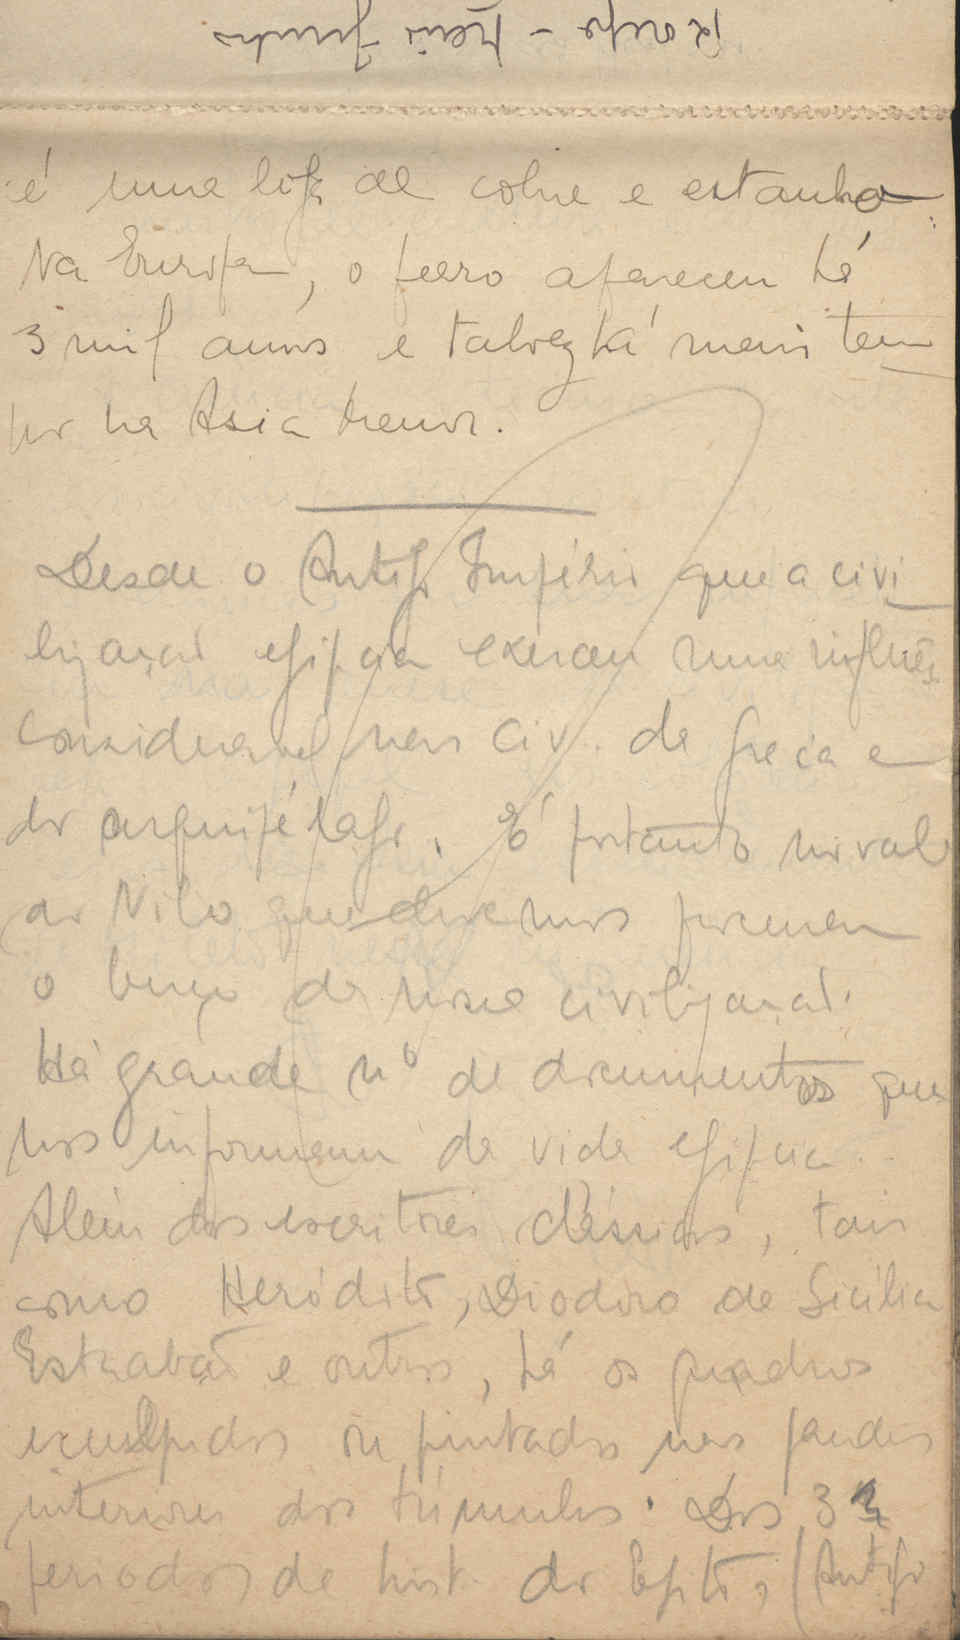 é uma liga de cobre e estanho.
Na Europa, o ferro apareceu há
3 mil anos e talvez há mais tem
po na Asia Menor.
Desde o Antigo Império que a civi
lização egipcia exerceu uma influên
consideravel nas civ. da Grecia e
do arquipélago. É portanto no vale
do Nilo que devemos procurar
o berço da nossa civilização.
Há grande nº de documentos que
nos informam da vida egipcia.
Além dos escritores clássicos, tais
como Heródoto, Diodoro de Sicília
Estrabão e outros, há os quadros
esculpidos ou pintados nas paredes
interiores dos túmulos. Dos 3
periodos da hist. do Egito, (Antigo